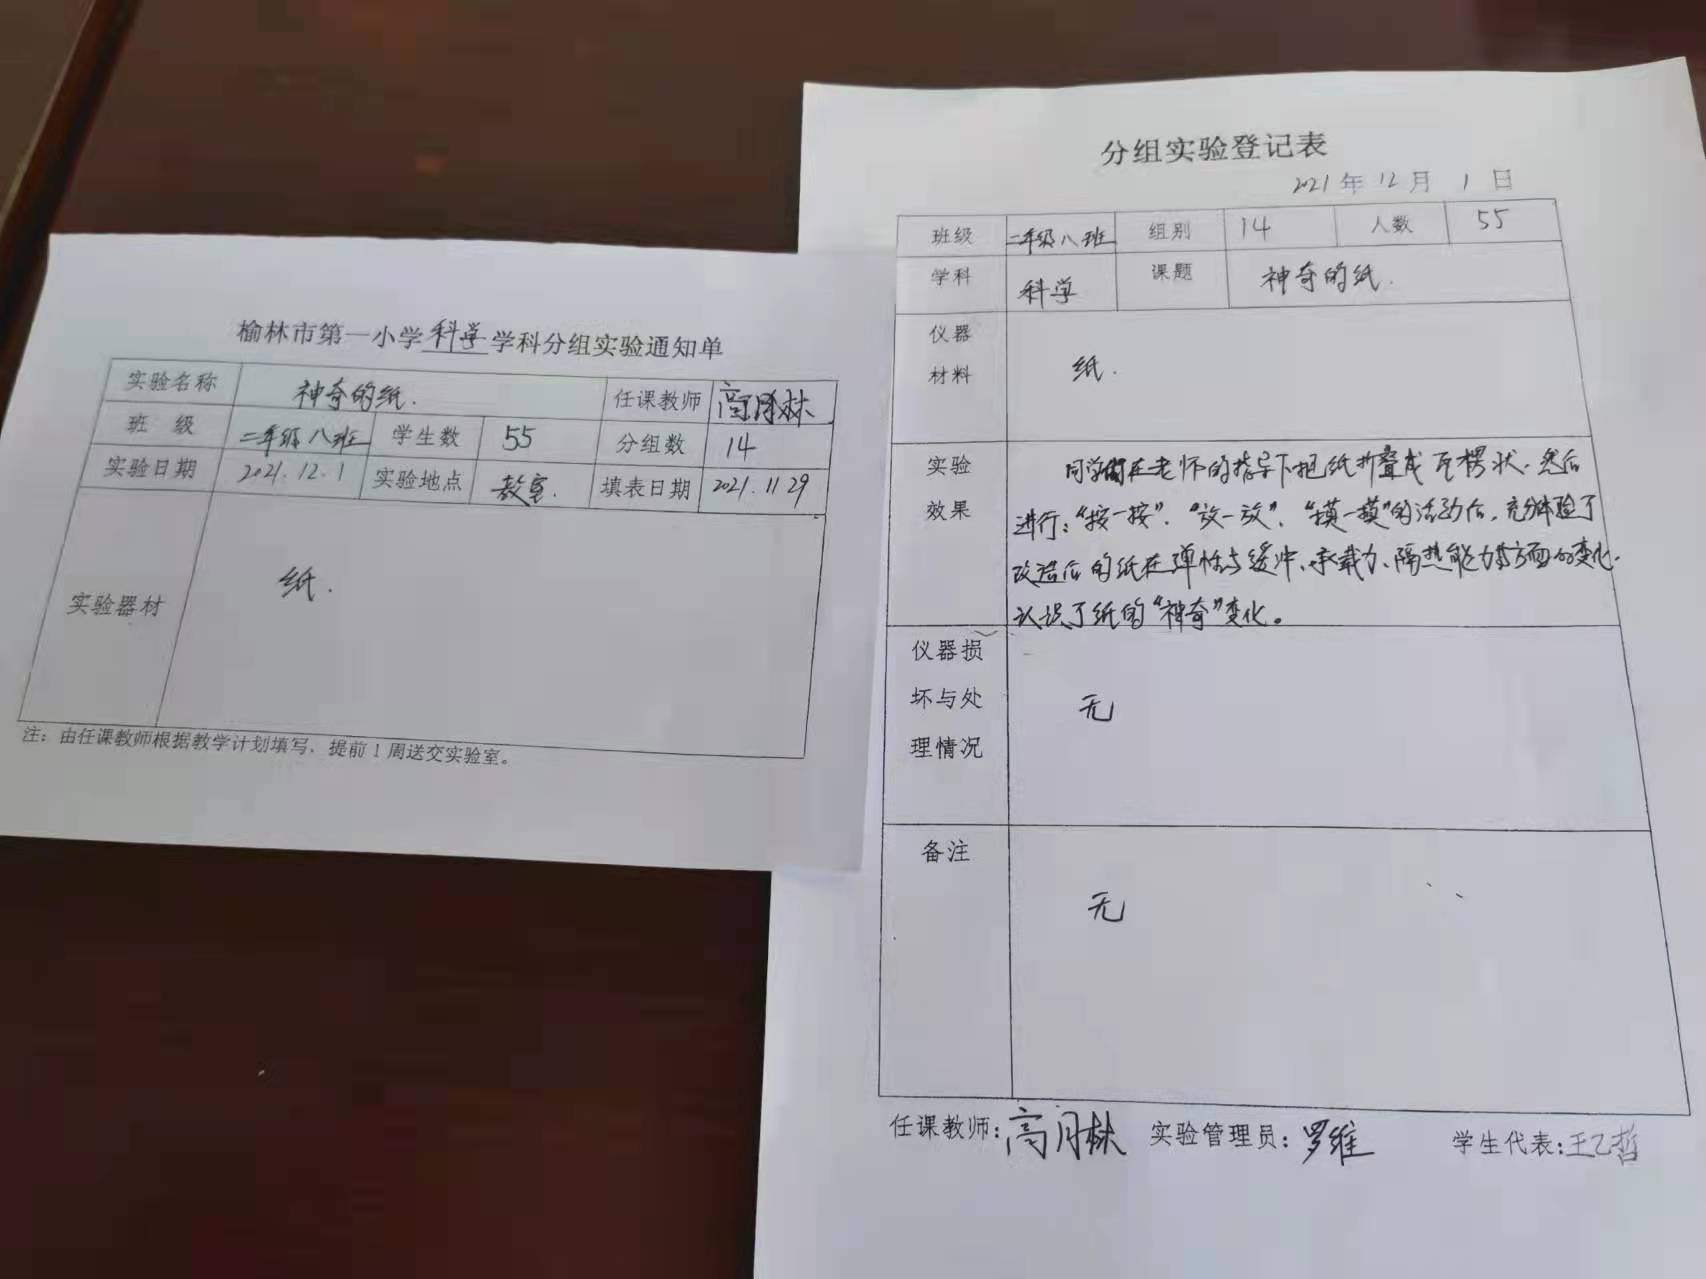 榆林市第一小学科学学科分组实验通知单
实验名称 神奇的纸. 任课教师 高月林
班 级 二年级八班 学生数 55 分组数 14
实验日期 2021.12.1 实验地点 教室. 填表日期 2021.11.29
实验器材 纸.
注：由任课教师根据教学计划填写，提前1周送交实验室。
分组实验登记表
2021年12月1日
班级 二年级八班 组别 14 人数 55
学科 科学 课题 神奇的纸.
仪器
材料
纸.
实验
效果
同学们在老师的指导下把纸折叠成瓦楞状.然后
进行：“按一按”、“放一放”、“摸一摸”的活动后，充分体验了
改造后的纸在弹性与缓冲、承载力、隔热能力等方面的变化.
认识了纸的“神奇”变化。
仪器损
坏与处
理情况
无
备注
无
任课教师：高月林 实验管理员：罗维 学生代表：王乙哲